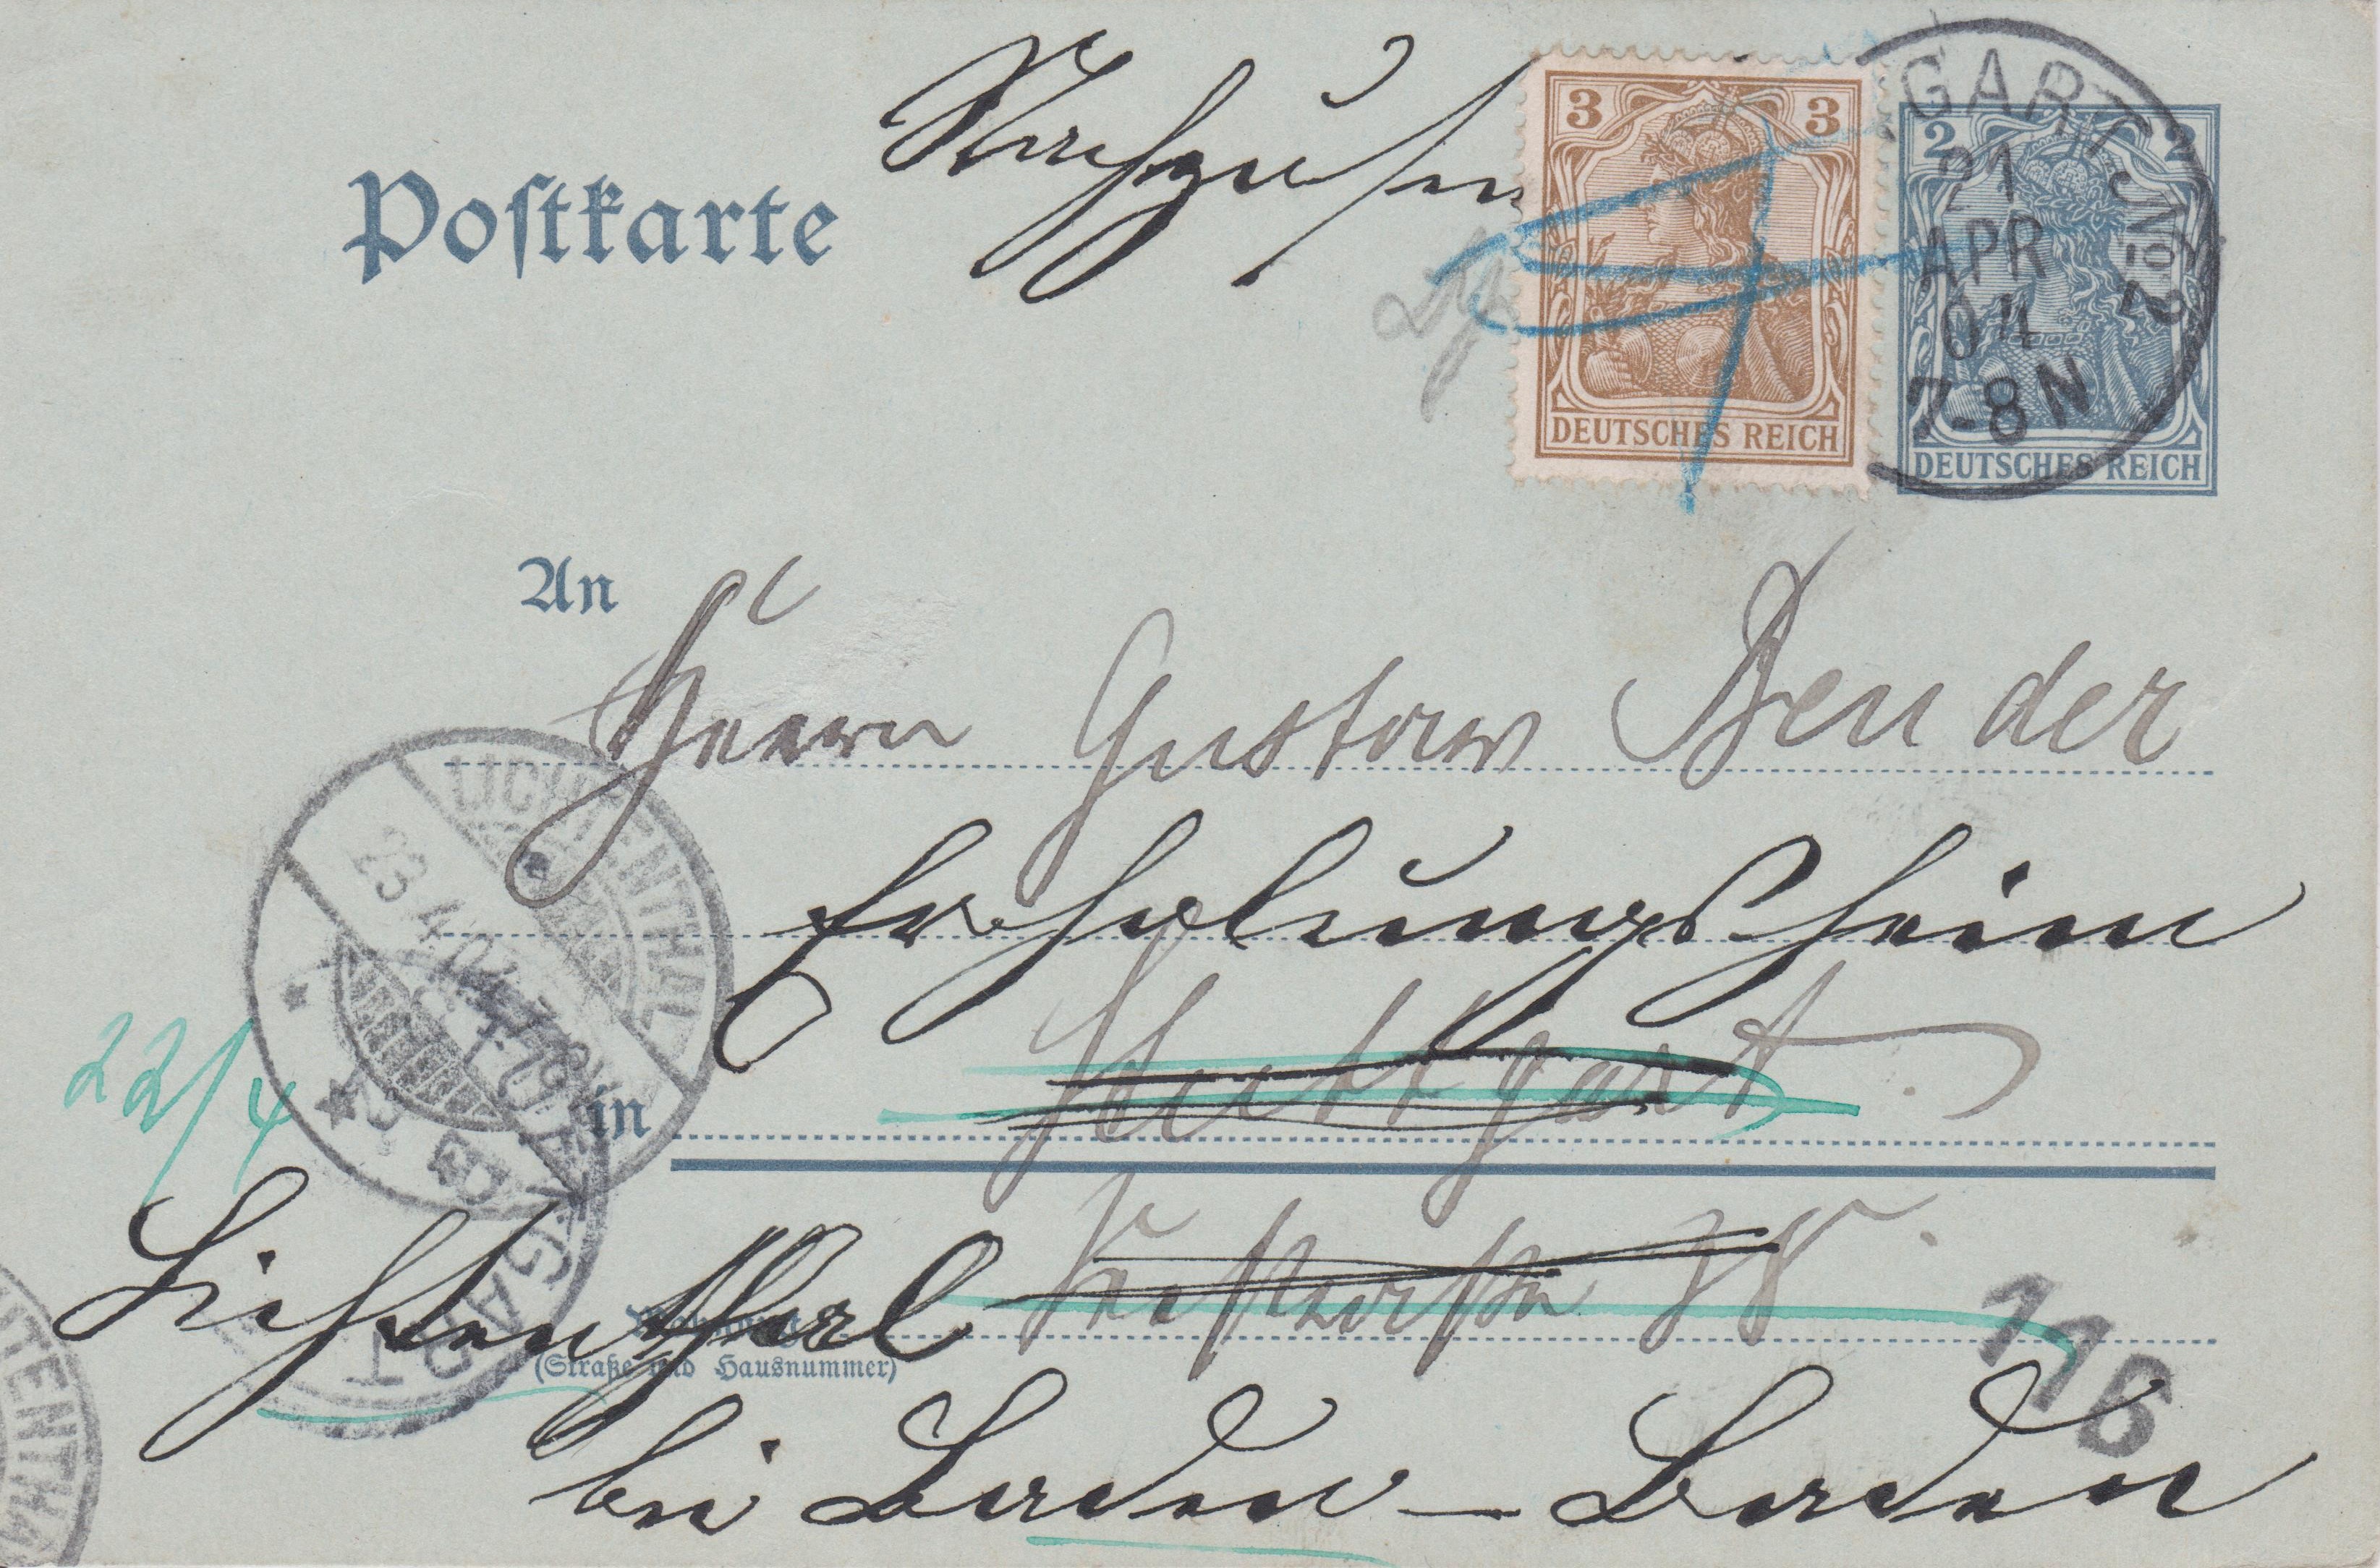 Postkarte
Nachzusen
3 3
DEUTSCHES REICH
2 2
DEUTSCHES REICH
GART No 2
21
APR
04
7-8N
An
Herrn Gustav Bender
Erholungsheim
LICHTENTHAL
23.4.04
22/4
in
Stuttgart.
38
GART
Lichtenthal
(Straße und Hausnummer)
116
bei Baden-Baden
TENTHA